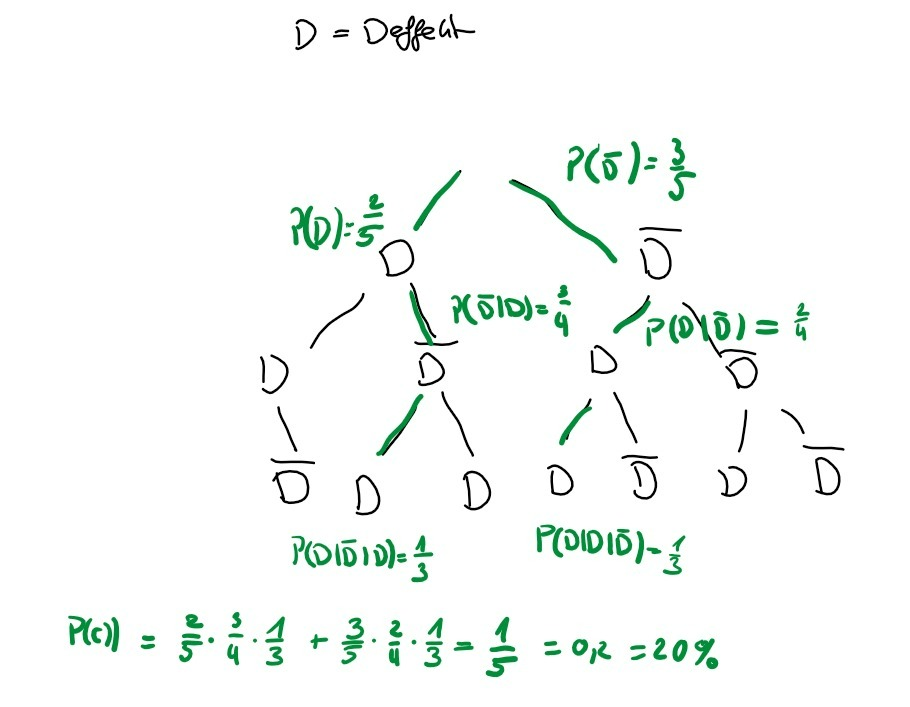 D = Deffekt
P(D̅) = 3/5
P(D) = 2/5
D D̅
P(D̅|D) = 3/4
P(D|D̅) = 2/4
D D̅ D D̅
D̅ D D D D̅ D D̅
P(D|D̅|D) = 1/3 P(D|D|D̅) = 1/3
P(c)) = 2/5 · 3/4 · 1/3 + 3/5 · 2/4 · 1/3 = 1/5 = 0,2 = 20%